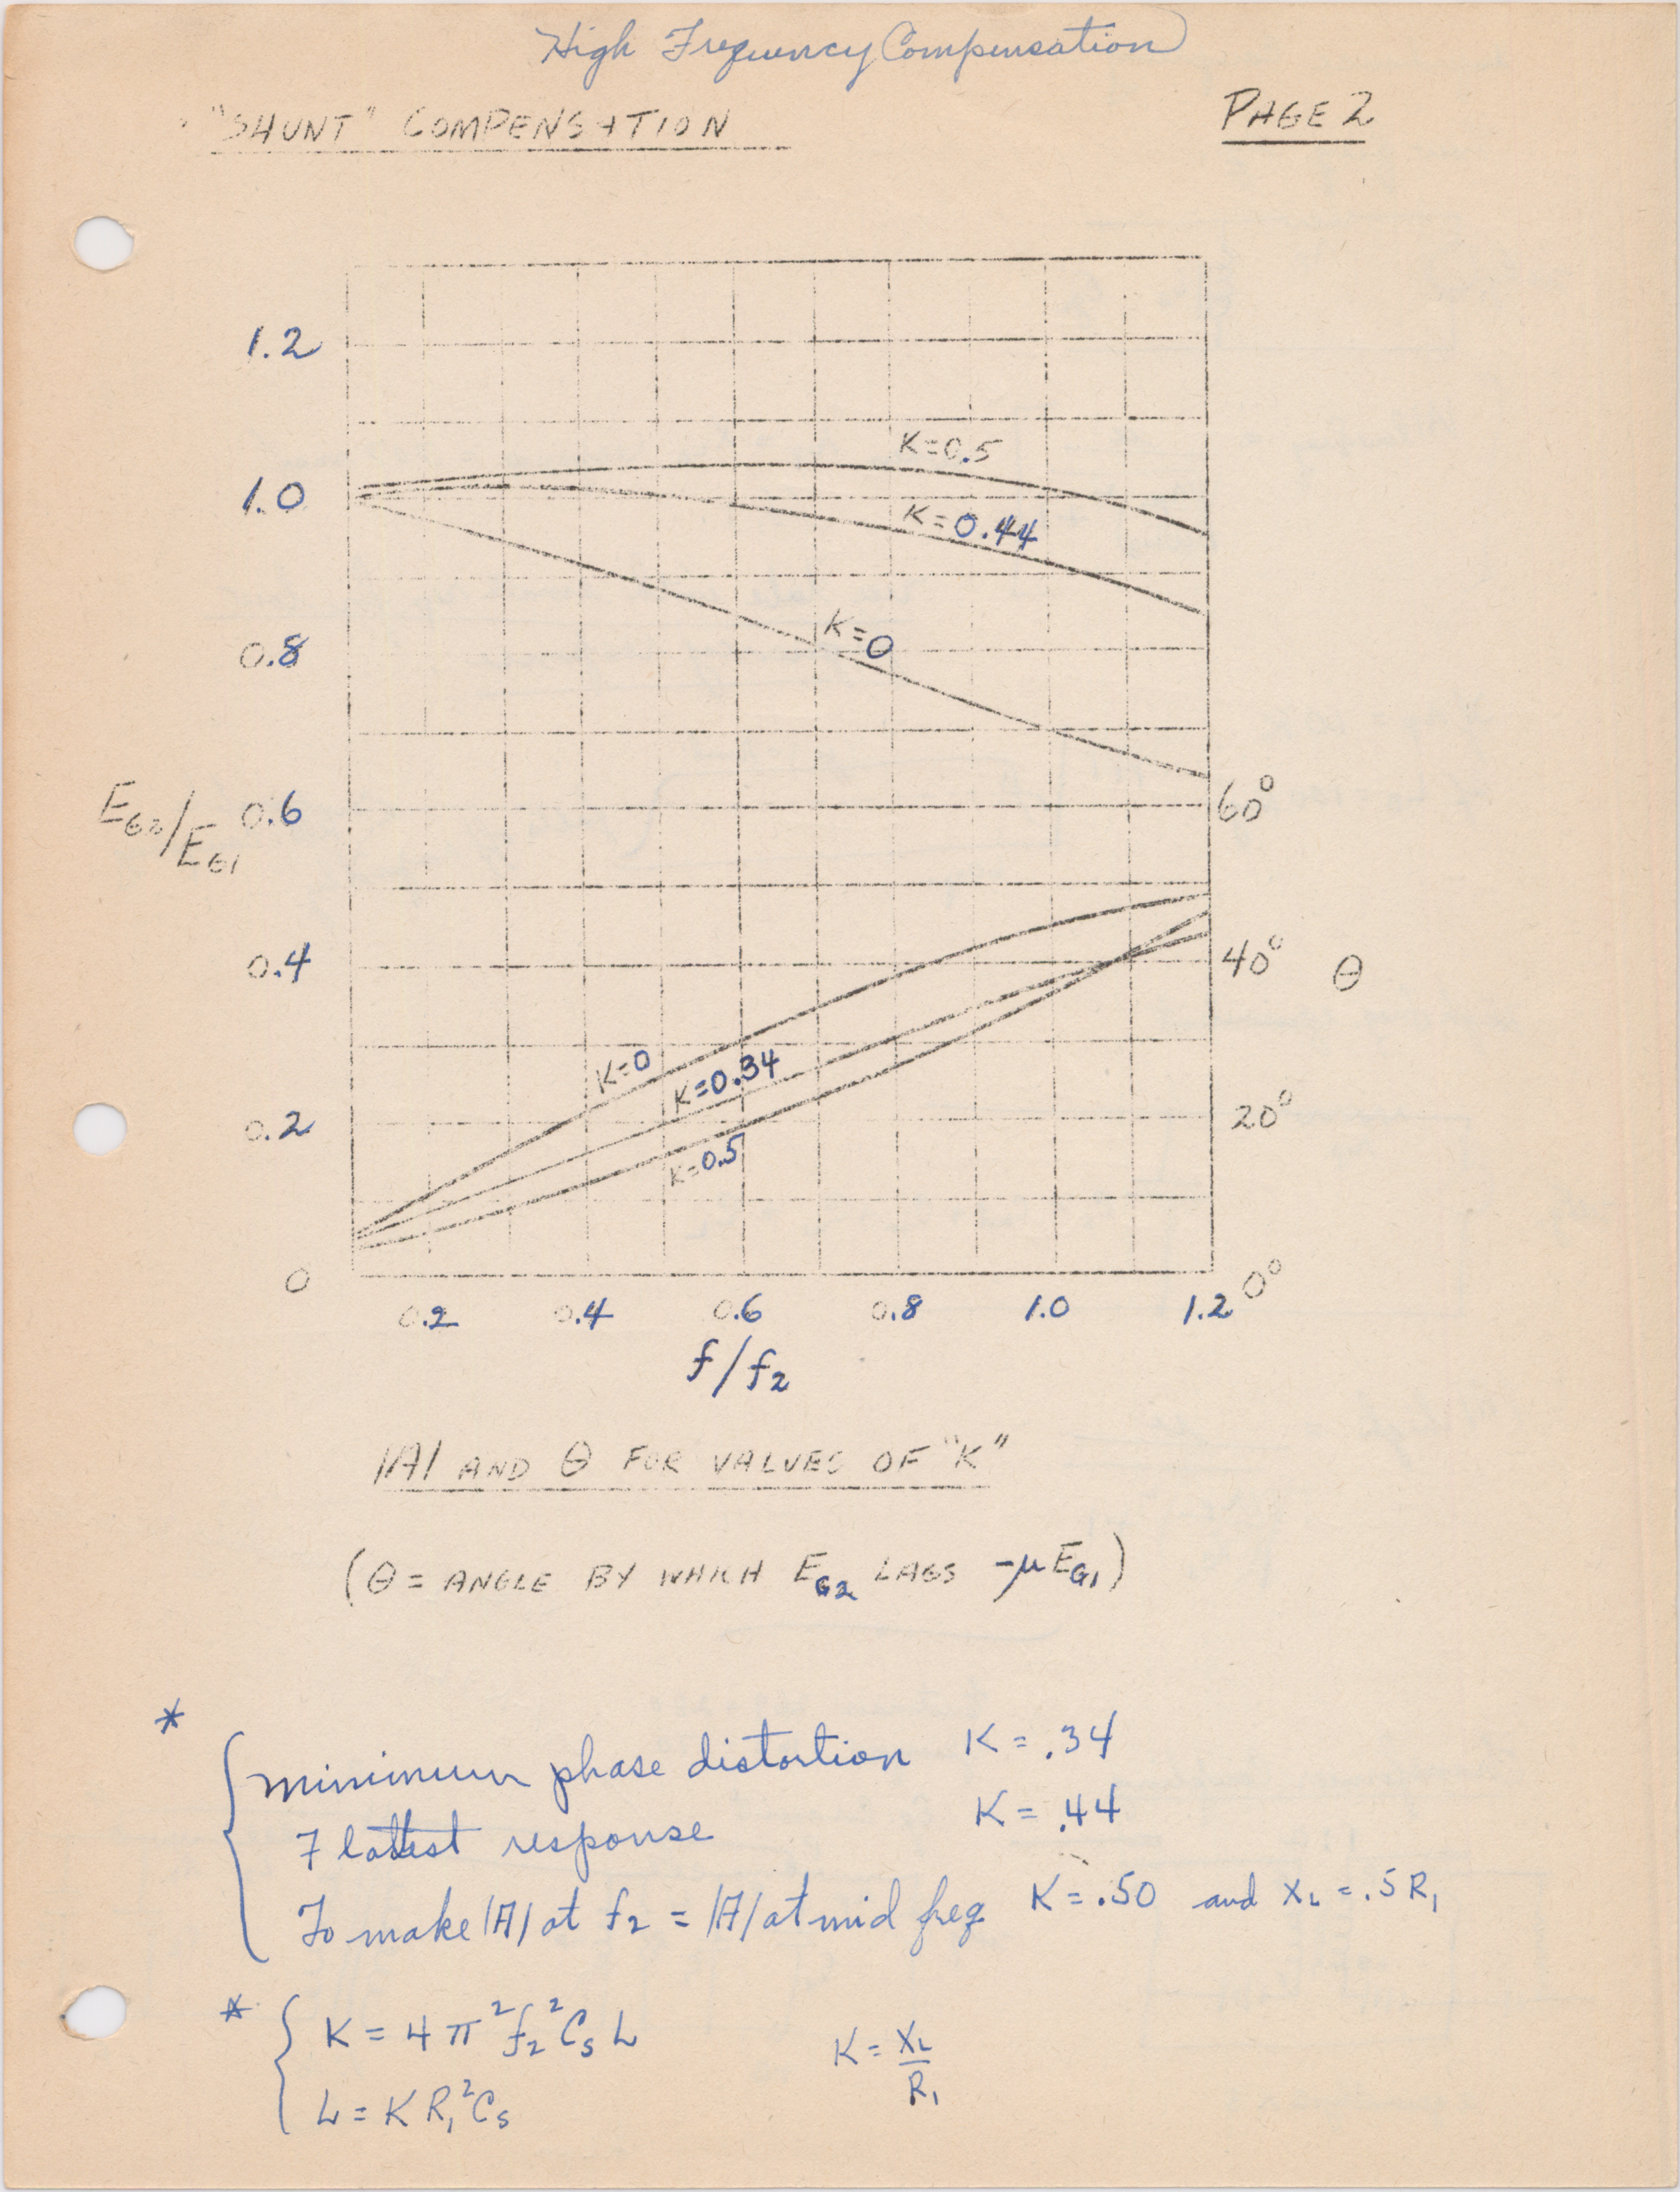 High Frequency Compensation
"SHUNT" COMPENSATION
PAGE 2
1.2
K=0.5
1.0
K=0.44
K=0
0.8
60°
EG2/EG1
0.6
0.4
40°
θ
K=0
K=0.34
0.2
20°
K=0.5
0
0°
0.2 0.4 0.6 0.8 1.0 1.2
f/f2
|A| AND θ FOR VALUES OF "K"
(θ = ANGLE BY WHICH EG2 LAGS -μEG1)
*
minimum phase distortion K = .34
Flattest response K = .44
To make |A| at f2 = |A| at mid freq K = .50 and XL = .5 R1
* K = 4π²f2²CsL K = XL/R1
L = KR1²Cs